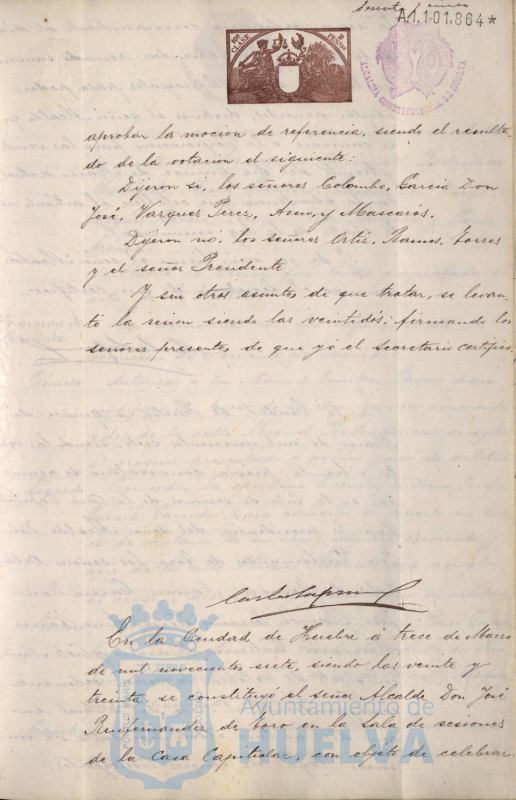 A.1.101.864*
10ª CLASE 2 PESETAS
ALCALDIA CONSTITUCIONAL DE HUELVA
aprobar la mocion de referencia, siendo el resulta-
do de la votacion el siguiente:
Dijeron si, los señores Colombo, Garcia Don
José, Vazquez Perez, y Mascarós.
Dijeron nó, los señores Ortiz, Ramos, Torres
y el señor Presidente
Y sin otros asuntos de que tratar, se levan-
tó la sesion siendo las veintidós; firmando los
señores presentes, de que yó el Secretario certifico.
En la Ciudad de Huelva á trece de Marzo
de mil novecientos siete, siendo las veinte y
treinta, se constituyó el señor Alcalde, Don José
de Toro en la Sala de sesiones
de la Casa Capitular, con objeto de celebrar
Ayuntamiento de
HUELVA